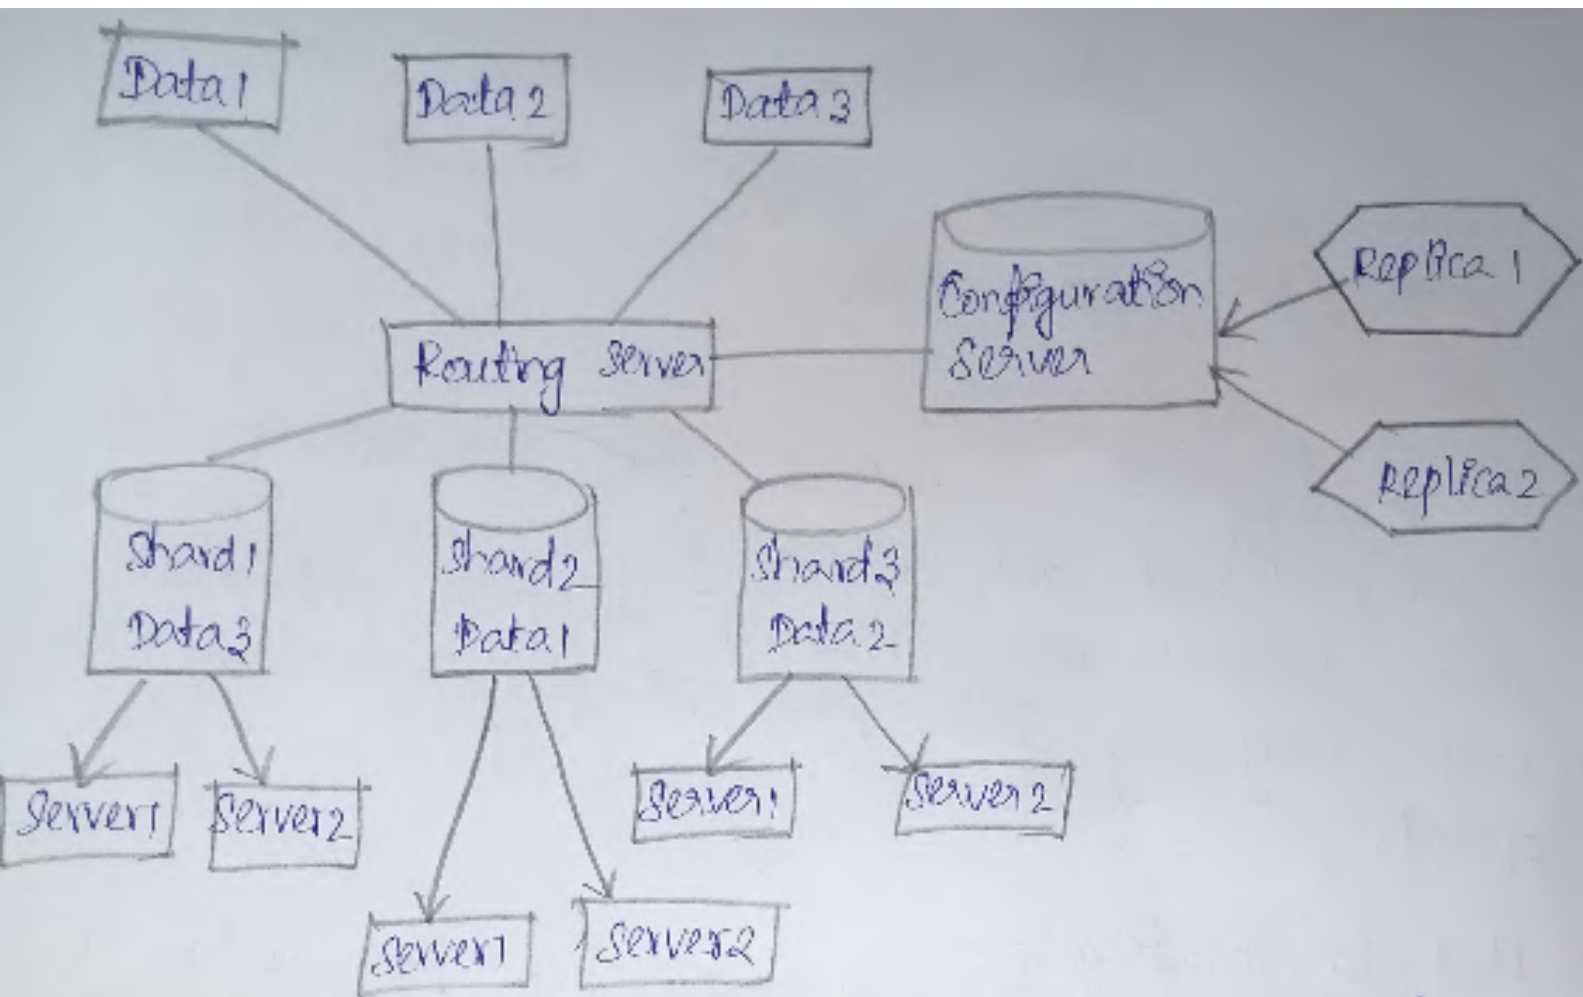 Data 1
Data 2
Data 3
Configuration
Server
Replica 1
Routing Server
Replica 2
Shard 1
Data 3
Shard 2
Data 1
Shard 3
Data 2
Server 1
Server 2
Server 1
Server 2
Server 1
Server 2